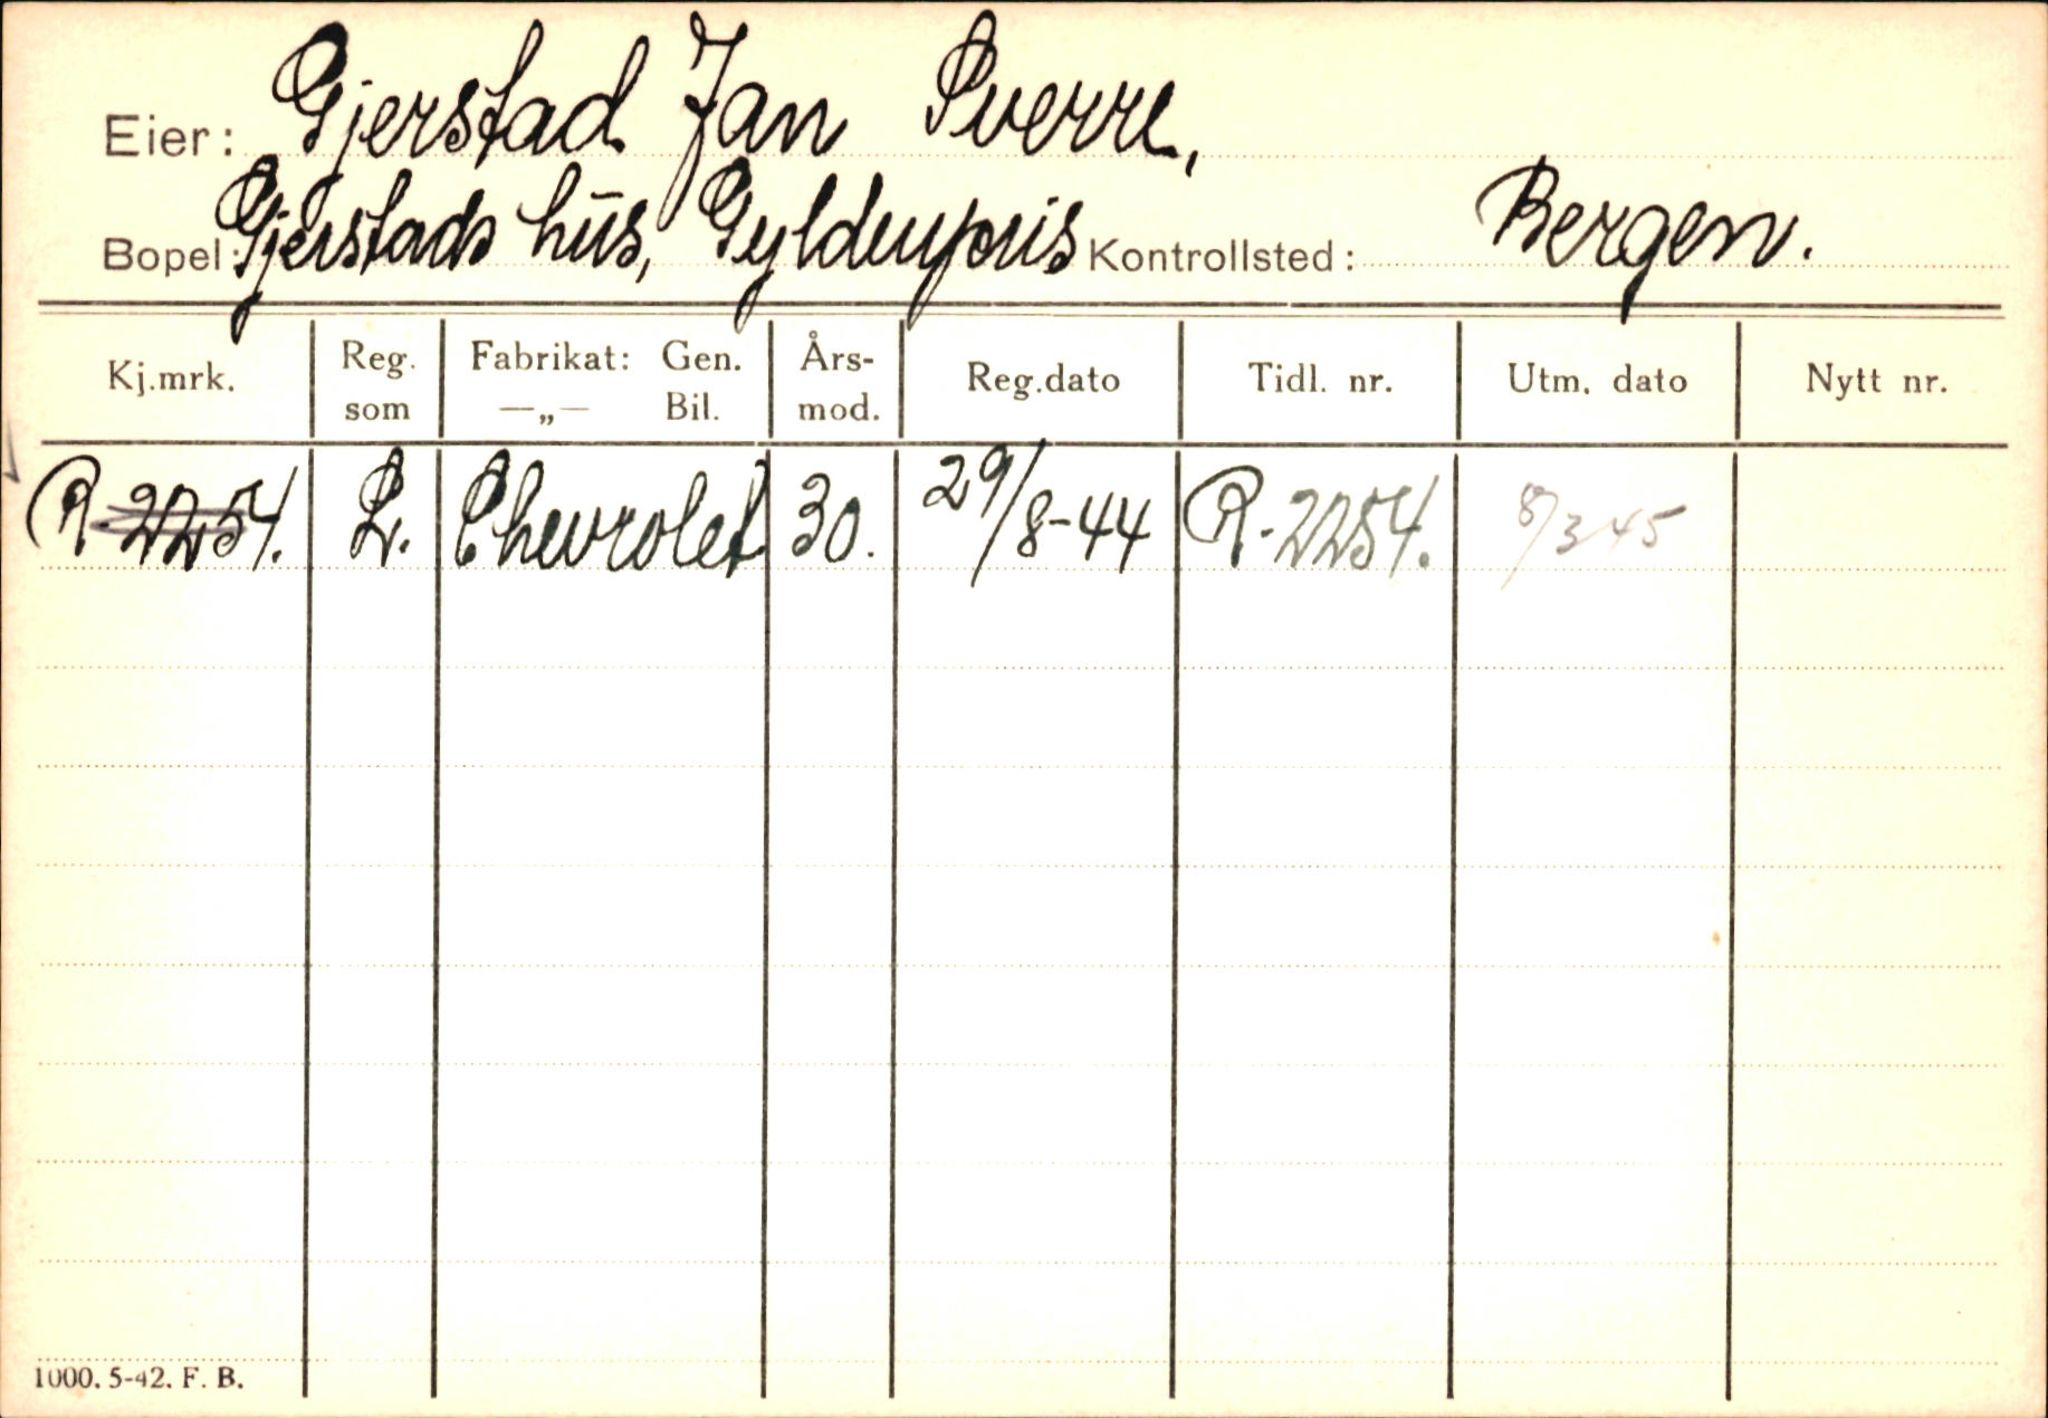 Eier: Gjerstad Jan Sverre,
Bopel: Gjerstads hus, Gyldenpris Kontrollsted: Bergen.
Kj.mrk. Reg. som Fabrikat: Gen. —„— Bil. Års-mod. Reg.dato Tidl. nr. Utm. dato Nytt nr.
R-2254. L. Chevrolet 30. 29/8-44 R-2254. 8/3 45
1000. 5-42. F. B.